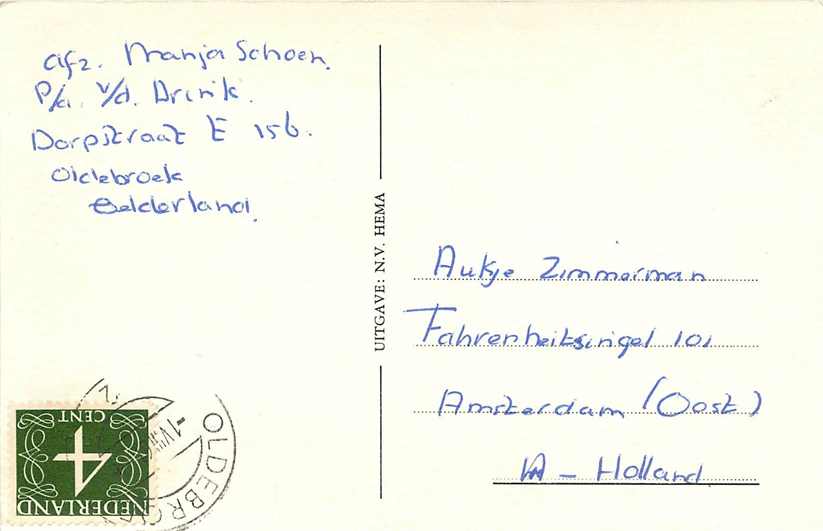 Afz. Manja Schoen.
P/a. v/d. Brink.
Dorpstraat E 156.
Oldebroek
Gelderland.
UITGAVE: N.V. HEMA
Aukje Zimmerman
Fahrenheitsingel 101
Amsterdam (Oost)
- Holland
OLDEBRO
4
CENT
NEDERLAND